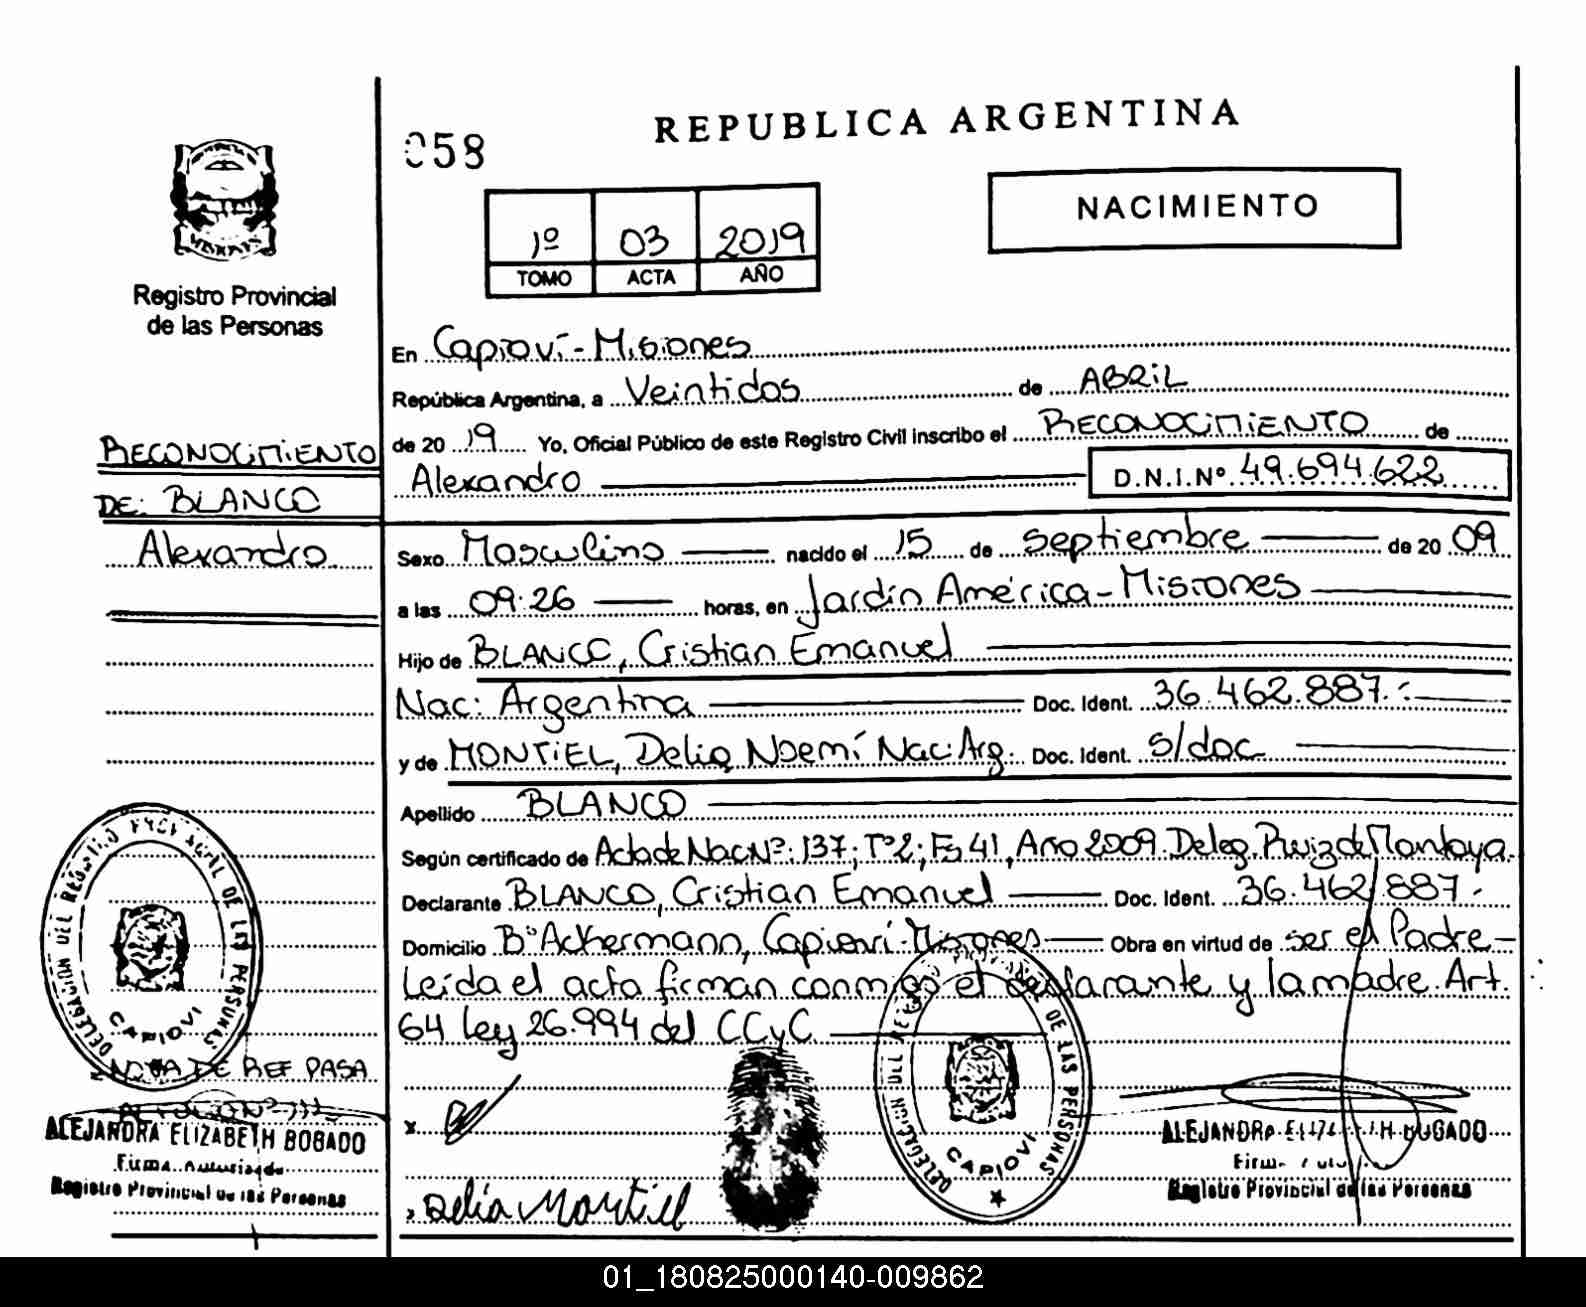 REPUBLICA ARGENTINA
058
NACIMIENTO
1º 03 2019
TOMO ACTA AÑO
MISIONES
Registro Provincial
de las Personas
En Capioví - Misiones
República Argentina, a Veintidos de ABRIL
de 2019 Yo, Oficial Público de este Registro Civil inscribo el RECONOCIMIENTO de
Alexandro D.N.I.Nº 49.694.622
RECONOCIMIENTO
DE: BLANCO
Alexandro
Sexo Masculino nacido el 15 de septiembre de 20 09
a las 09:26 horas, en Jardín América - Misiones
Hijo de BLANCO, Cristian Emanuel
Nac: Argentina Doc. Ident. 36.462.887.-
y de MONTIEL, Delia Noemí Nac: Arg. Doc. Ident. s/doc
Apellido BLANCO
Según certificado de Acta de Nac Nº: 137; Tº2; Fº 41, Año 2009 Deleg. Ruiz de Montoya.
Declarante BLANCO, Cristian Emanuel Doc. Ident. 36.462.887.-
Domicilio Bº Ackermann, Capioví - Misiones Obra en virtud de ser el Padre
Leída el acta firman conmigo el declarante y la madre. Art.
64 Ley 26.994 del CCyC.
DELEGACIÓN DEL REGISTRO PROVINCIAL DE LAS PERSONAS
CAPIOVI
NOTA DE REF PASA
ALEJANDRA ELIZABETH BOGADO
Firma Autorizada
Registro Provincial de las Personas
x
Delia Montiel
DELEGACIÓN DEL REGISTRO PROVINCIAL DE LAS PERSONAS
CAPIOVI
ALEJANDRA ELIZABETH BOGADO
Registro Provincial de las Personas
01_180825000140-009862